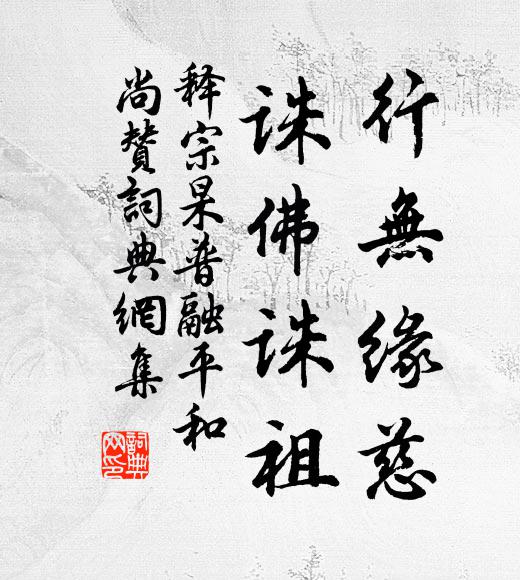 行無緣慈
誅佛誅祖
释宗杲普融平和
尚贊詞典網集
詞典网印